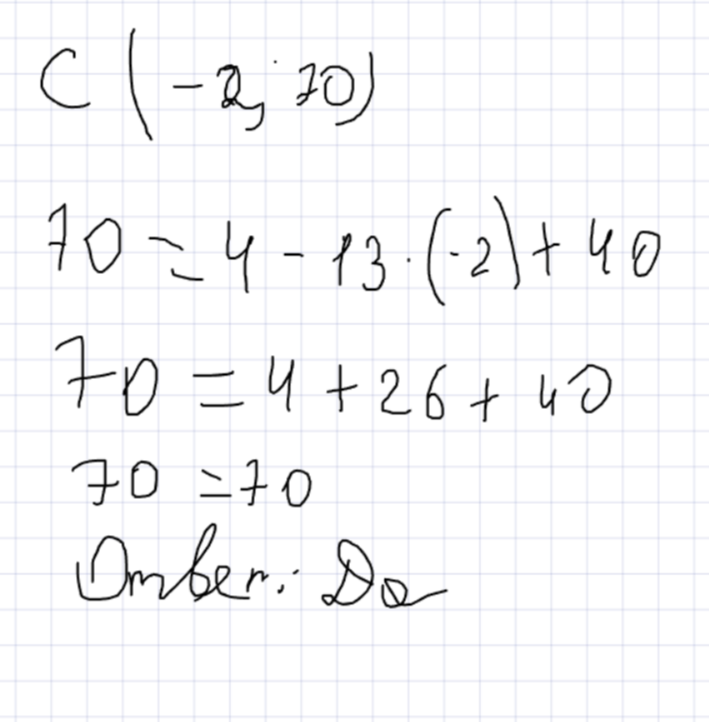 C (-2; 70)
70 = 4 - 13 · (-2) + 40
70 = 4 + 26 + 40
70 = 70
Ответ: Да